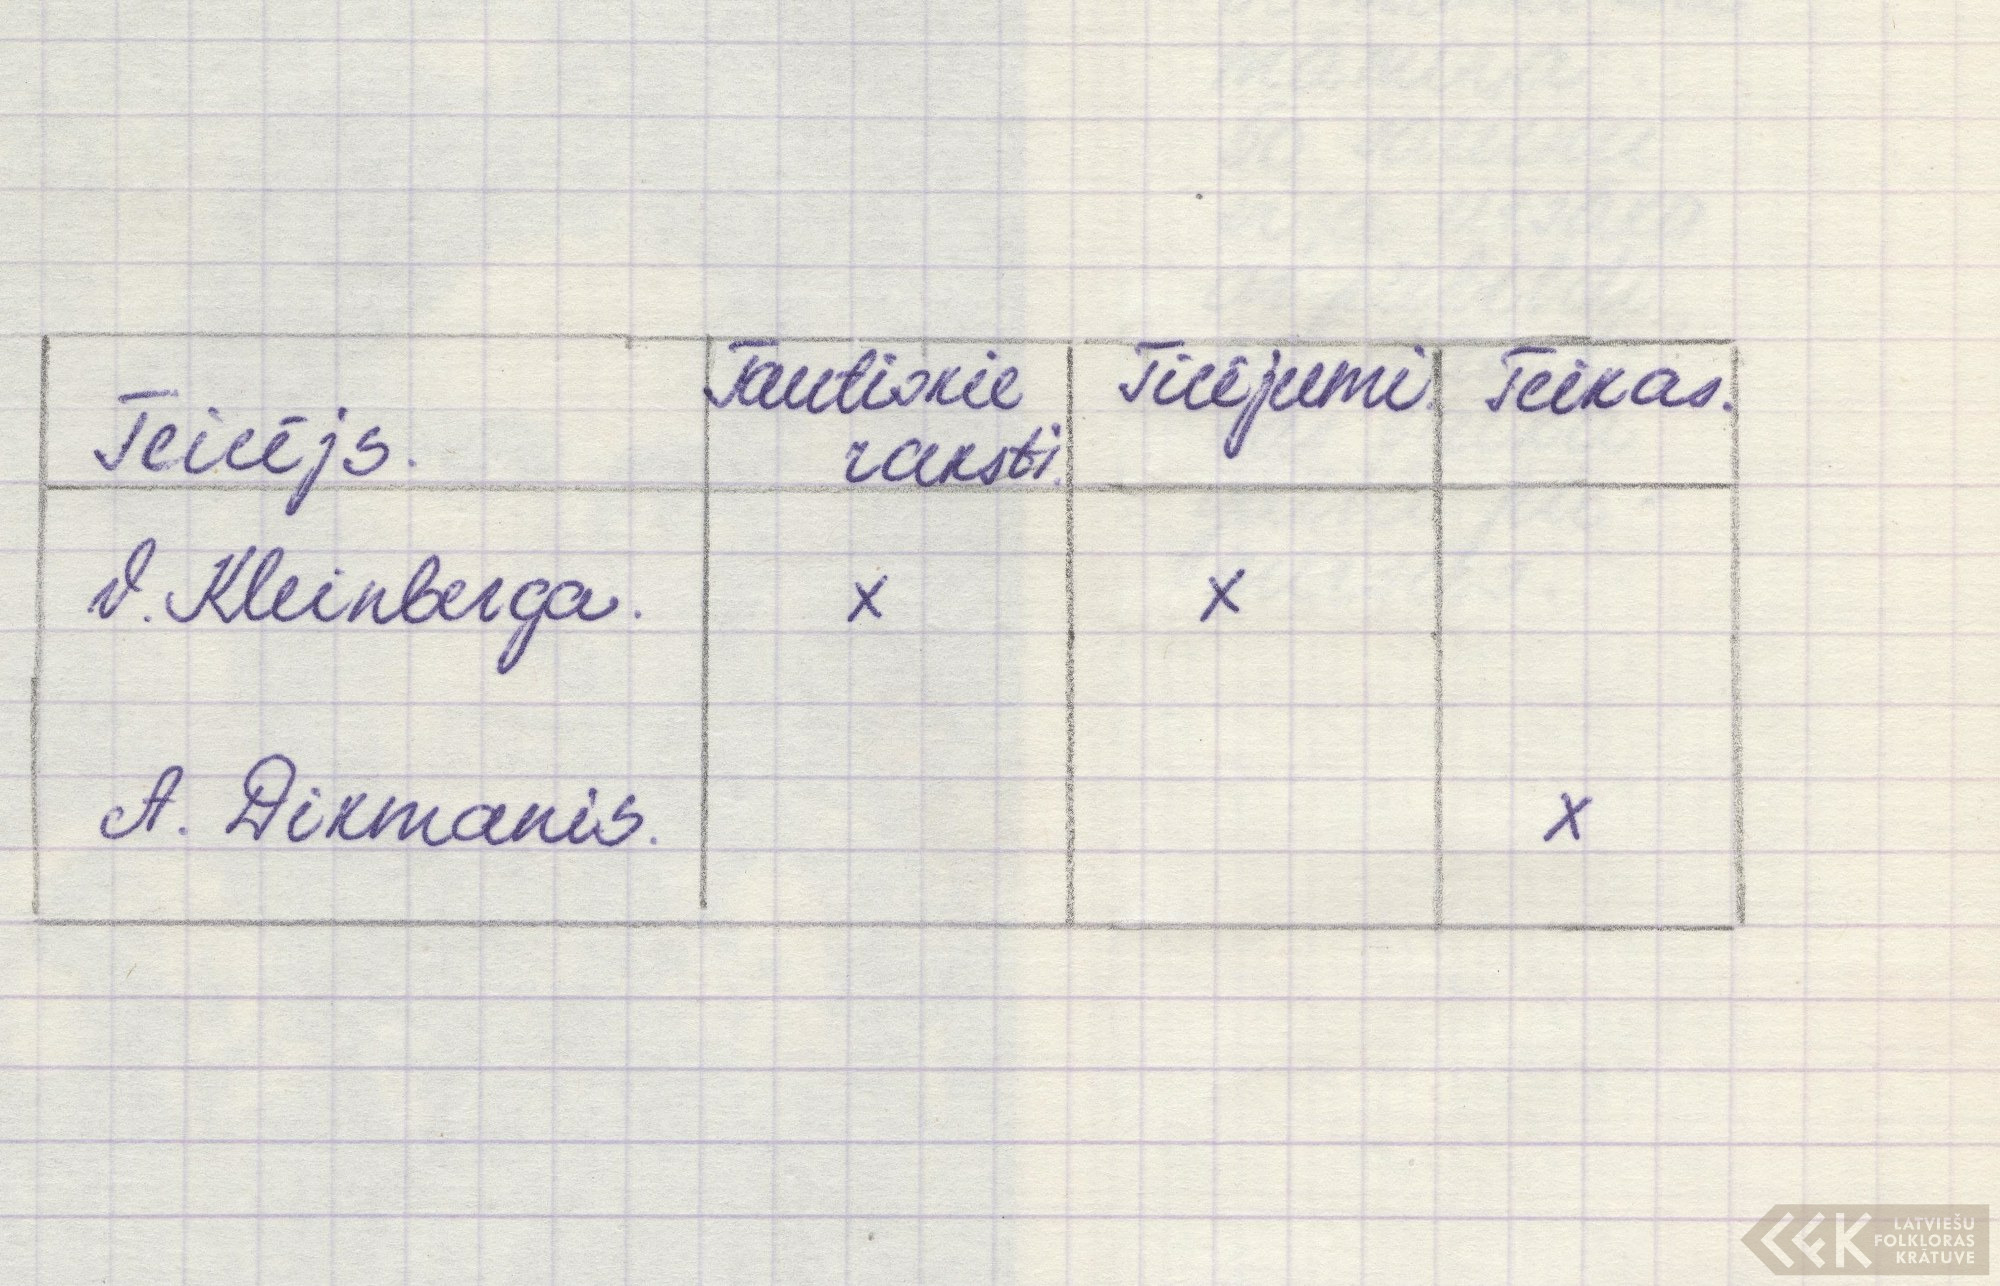 Teicējs. Tautiskie raksti. Ticējumi. Teikas.
V. Kleinberga. x x
A. Dikmanis. x
LATVIEŠU
FOLKLORAS
KRĀTUVE